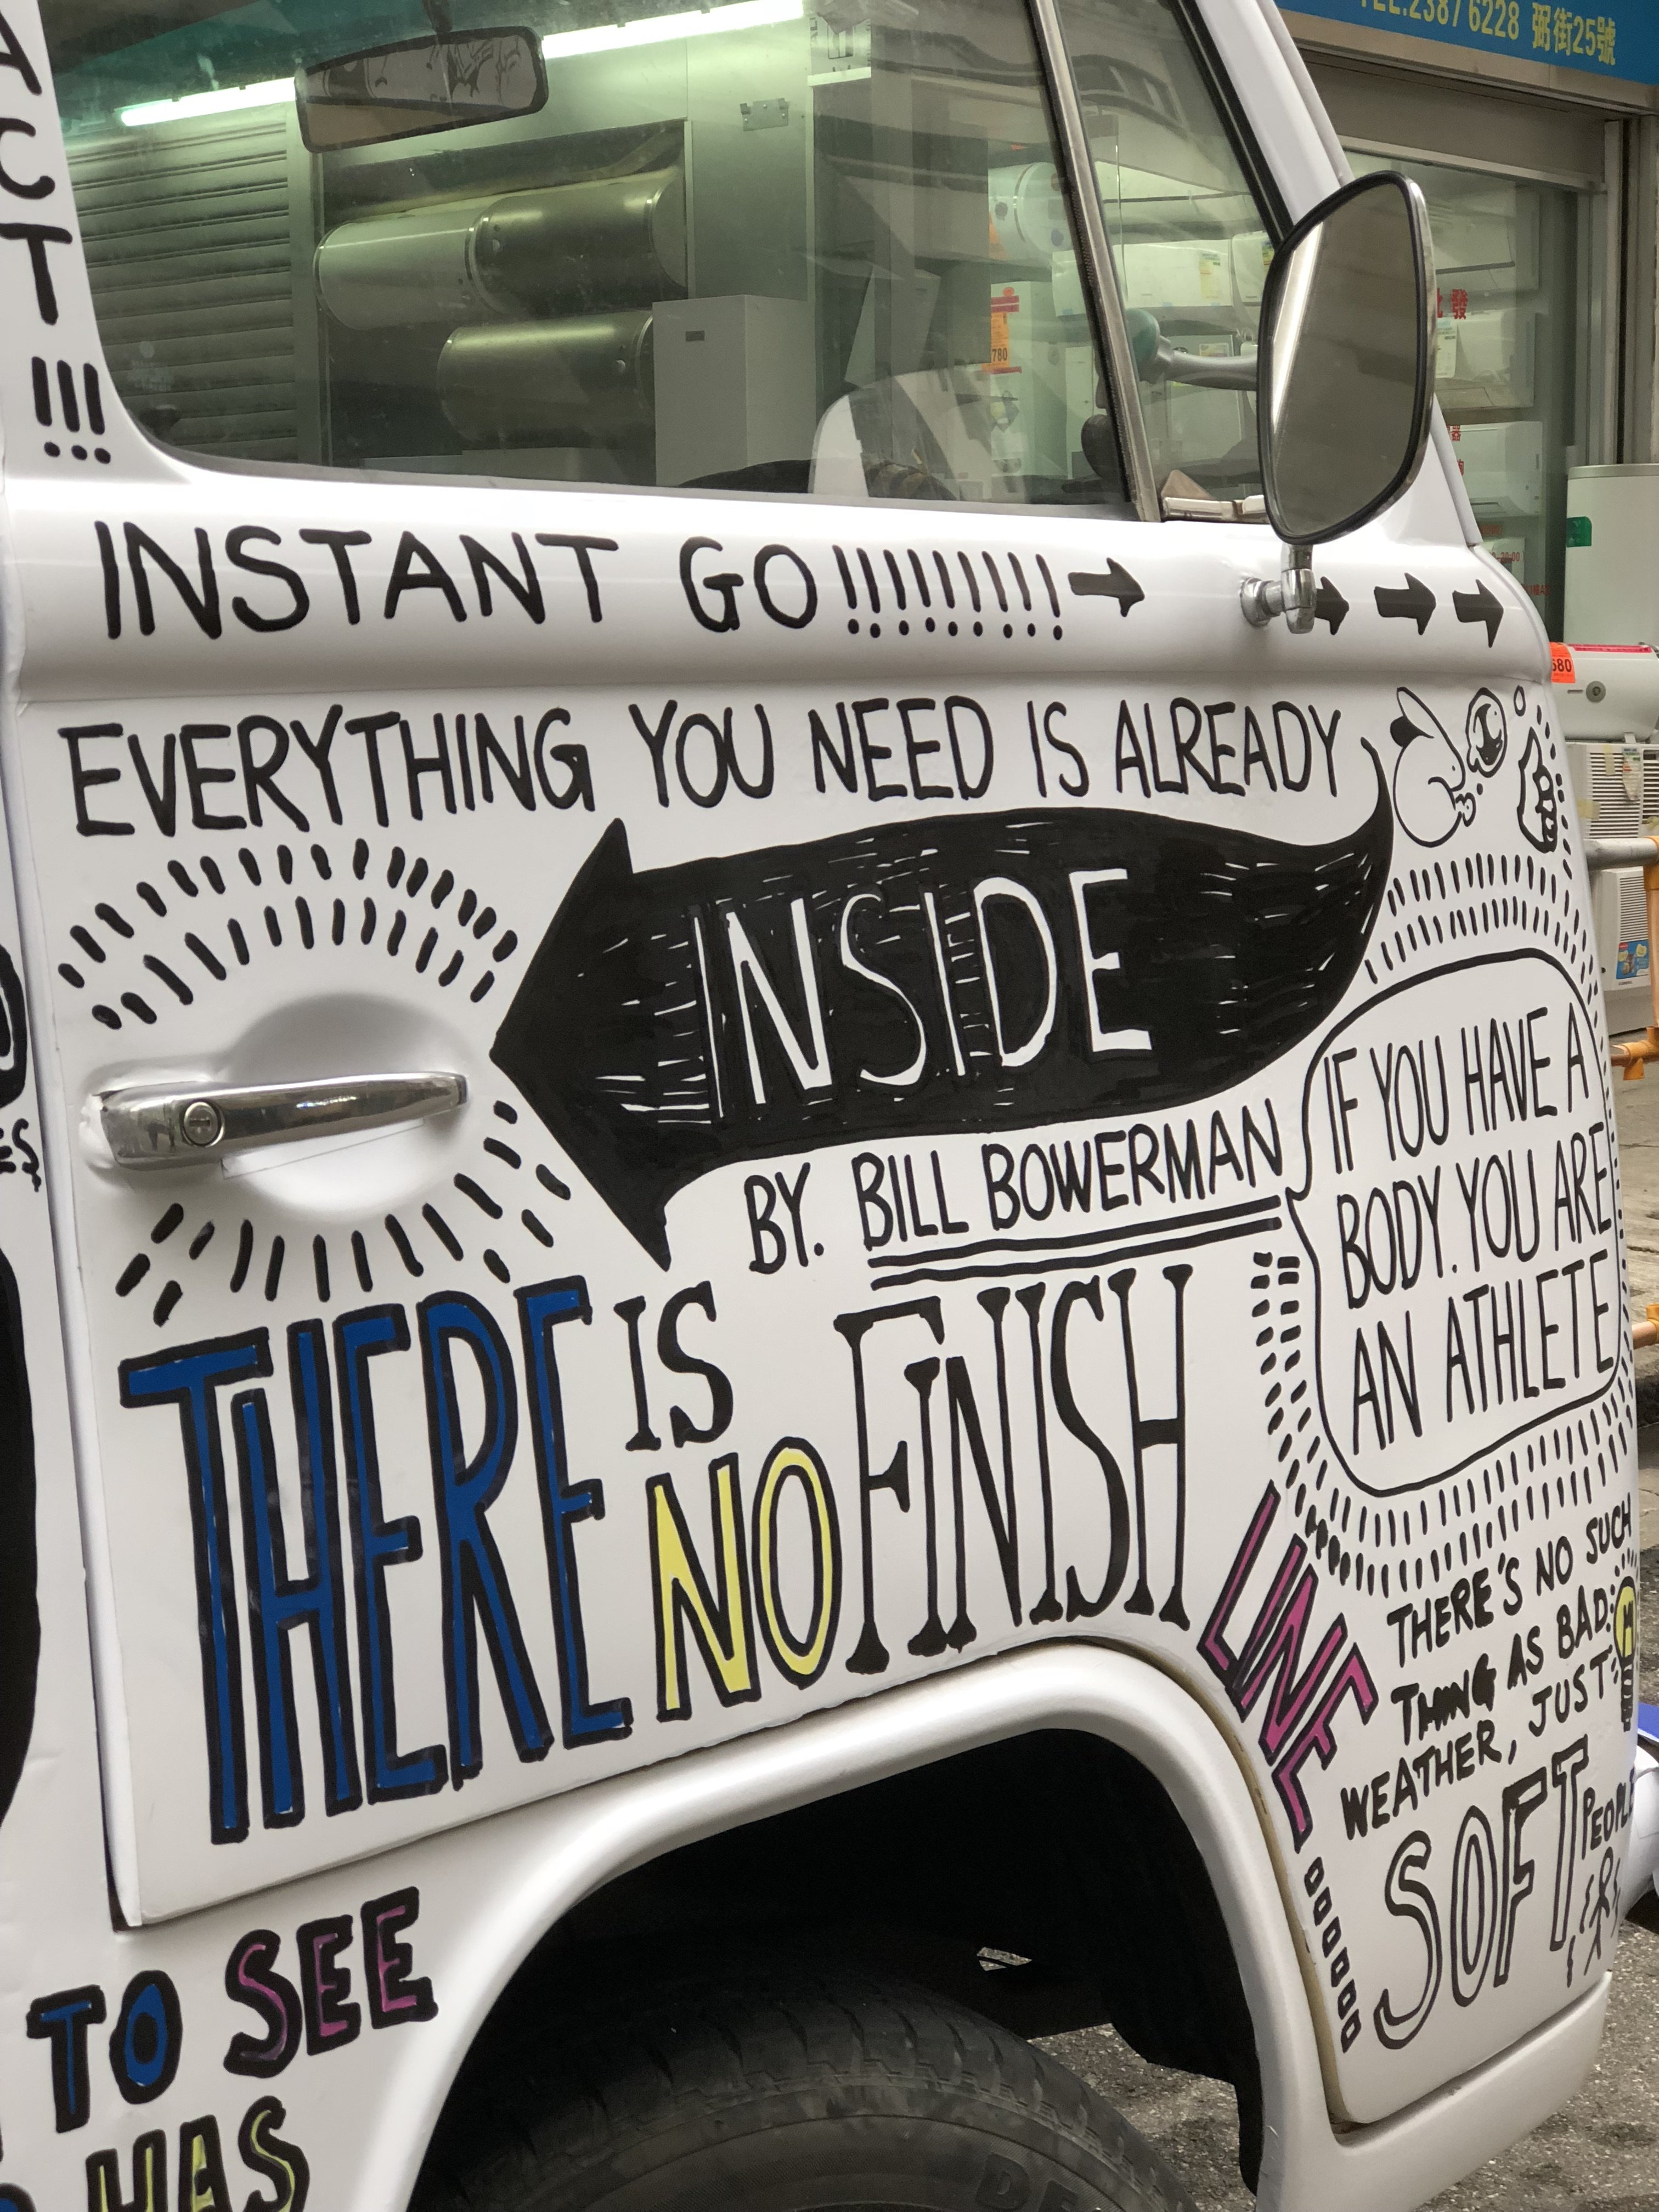 TEL:2387 6228 弼街25號
ACT!!!
發
780
INSTANT GO!!!!!!!!!
580
EVERYTHING YOU NEED IS ALREADY
INSIDE
BY. BILL BOWERMAN
IF YOU HAVE A
BODY. YOU ARE
AN ATHLETE
THERE IS
NO FINISH
LINE
THERE'S NO SUCH
THING AS BAD
WEATHER, JUST
SOFT PEOPLE
TO SEE
HAS